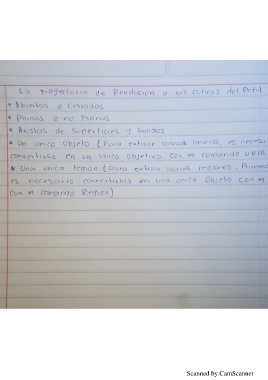 La trayectoria de Revolucion y las curvas del Perfil
* Abiertas o Cerradas
* Planas o no Planas
* Aristas de Superficies y Solidos
* un unico objeto (Para extruir varias lineas, es necesa
convertirse en un unico objetivo con el comando UNIR
* Una unica region (para extruir varias regiones, Primero
es necesario convertirlas en una unica Objeto con el
con el comando Region)
Scanned by CamScanner